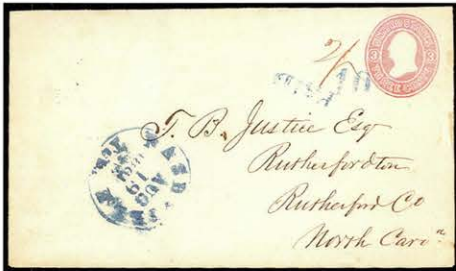 2/
10
PAID
T. B. Justice Esq
Rutherfordton
Rutherford Co
North Caroa
NASHVILLE
Ten.
AUG
19